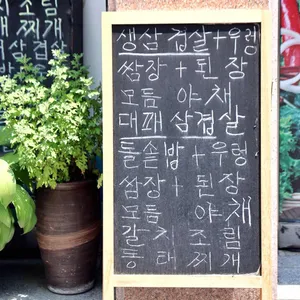 조림
찌개
삼겹살
생삼겹살+우렁
쌈장+된장
모듬 야채
대패삼겹살
돌솥밥+우렁
쌈장+된장
모듬 야채
갈치조림
동태찌개